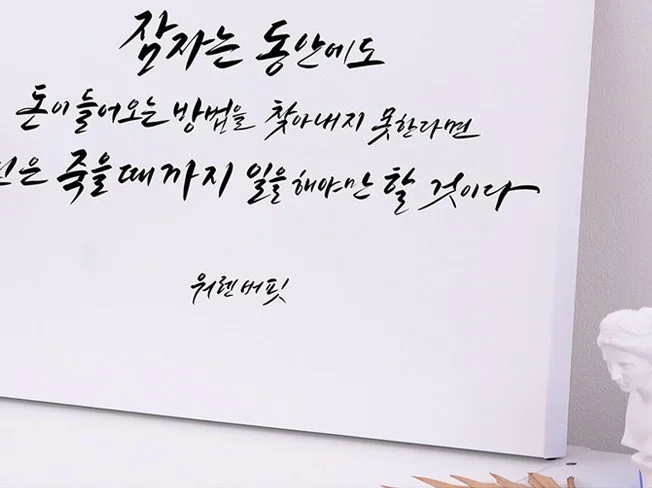 잠자는 동안에도
돈이 들어오는 방법을 찾아내지 못한다면
신은 죽을때까지 일을해야만 할 것이다
워렌버핏